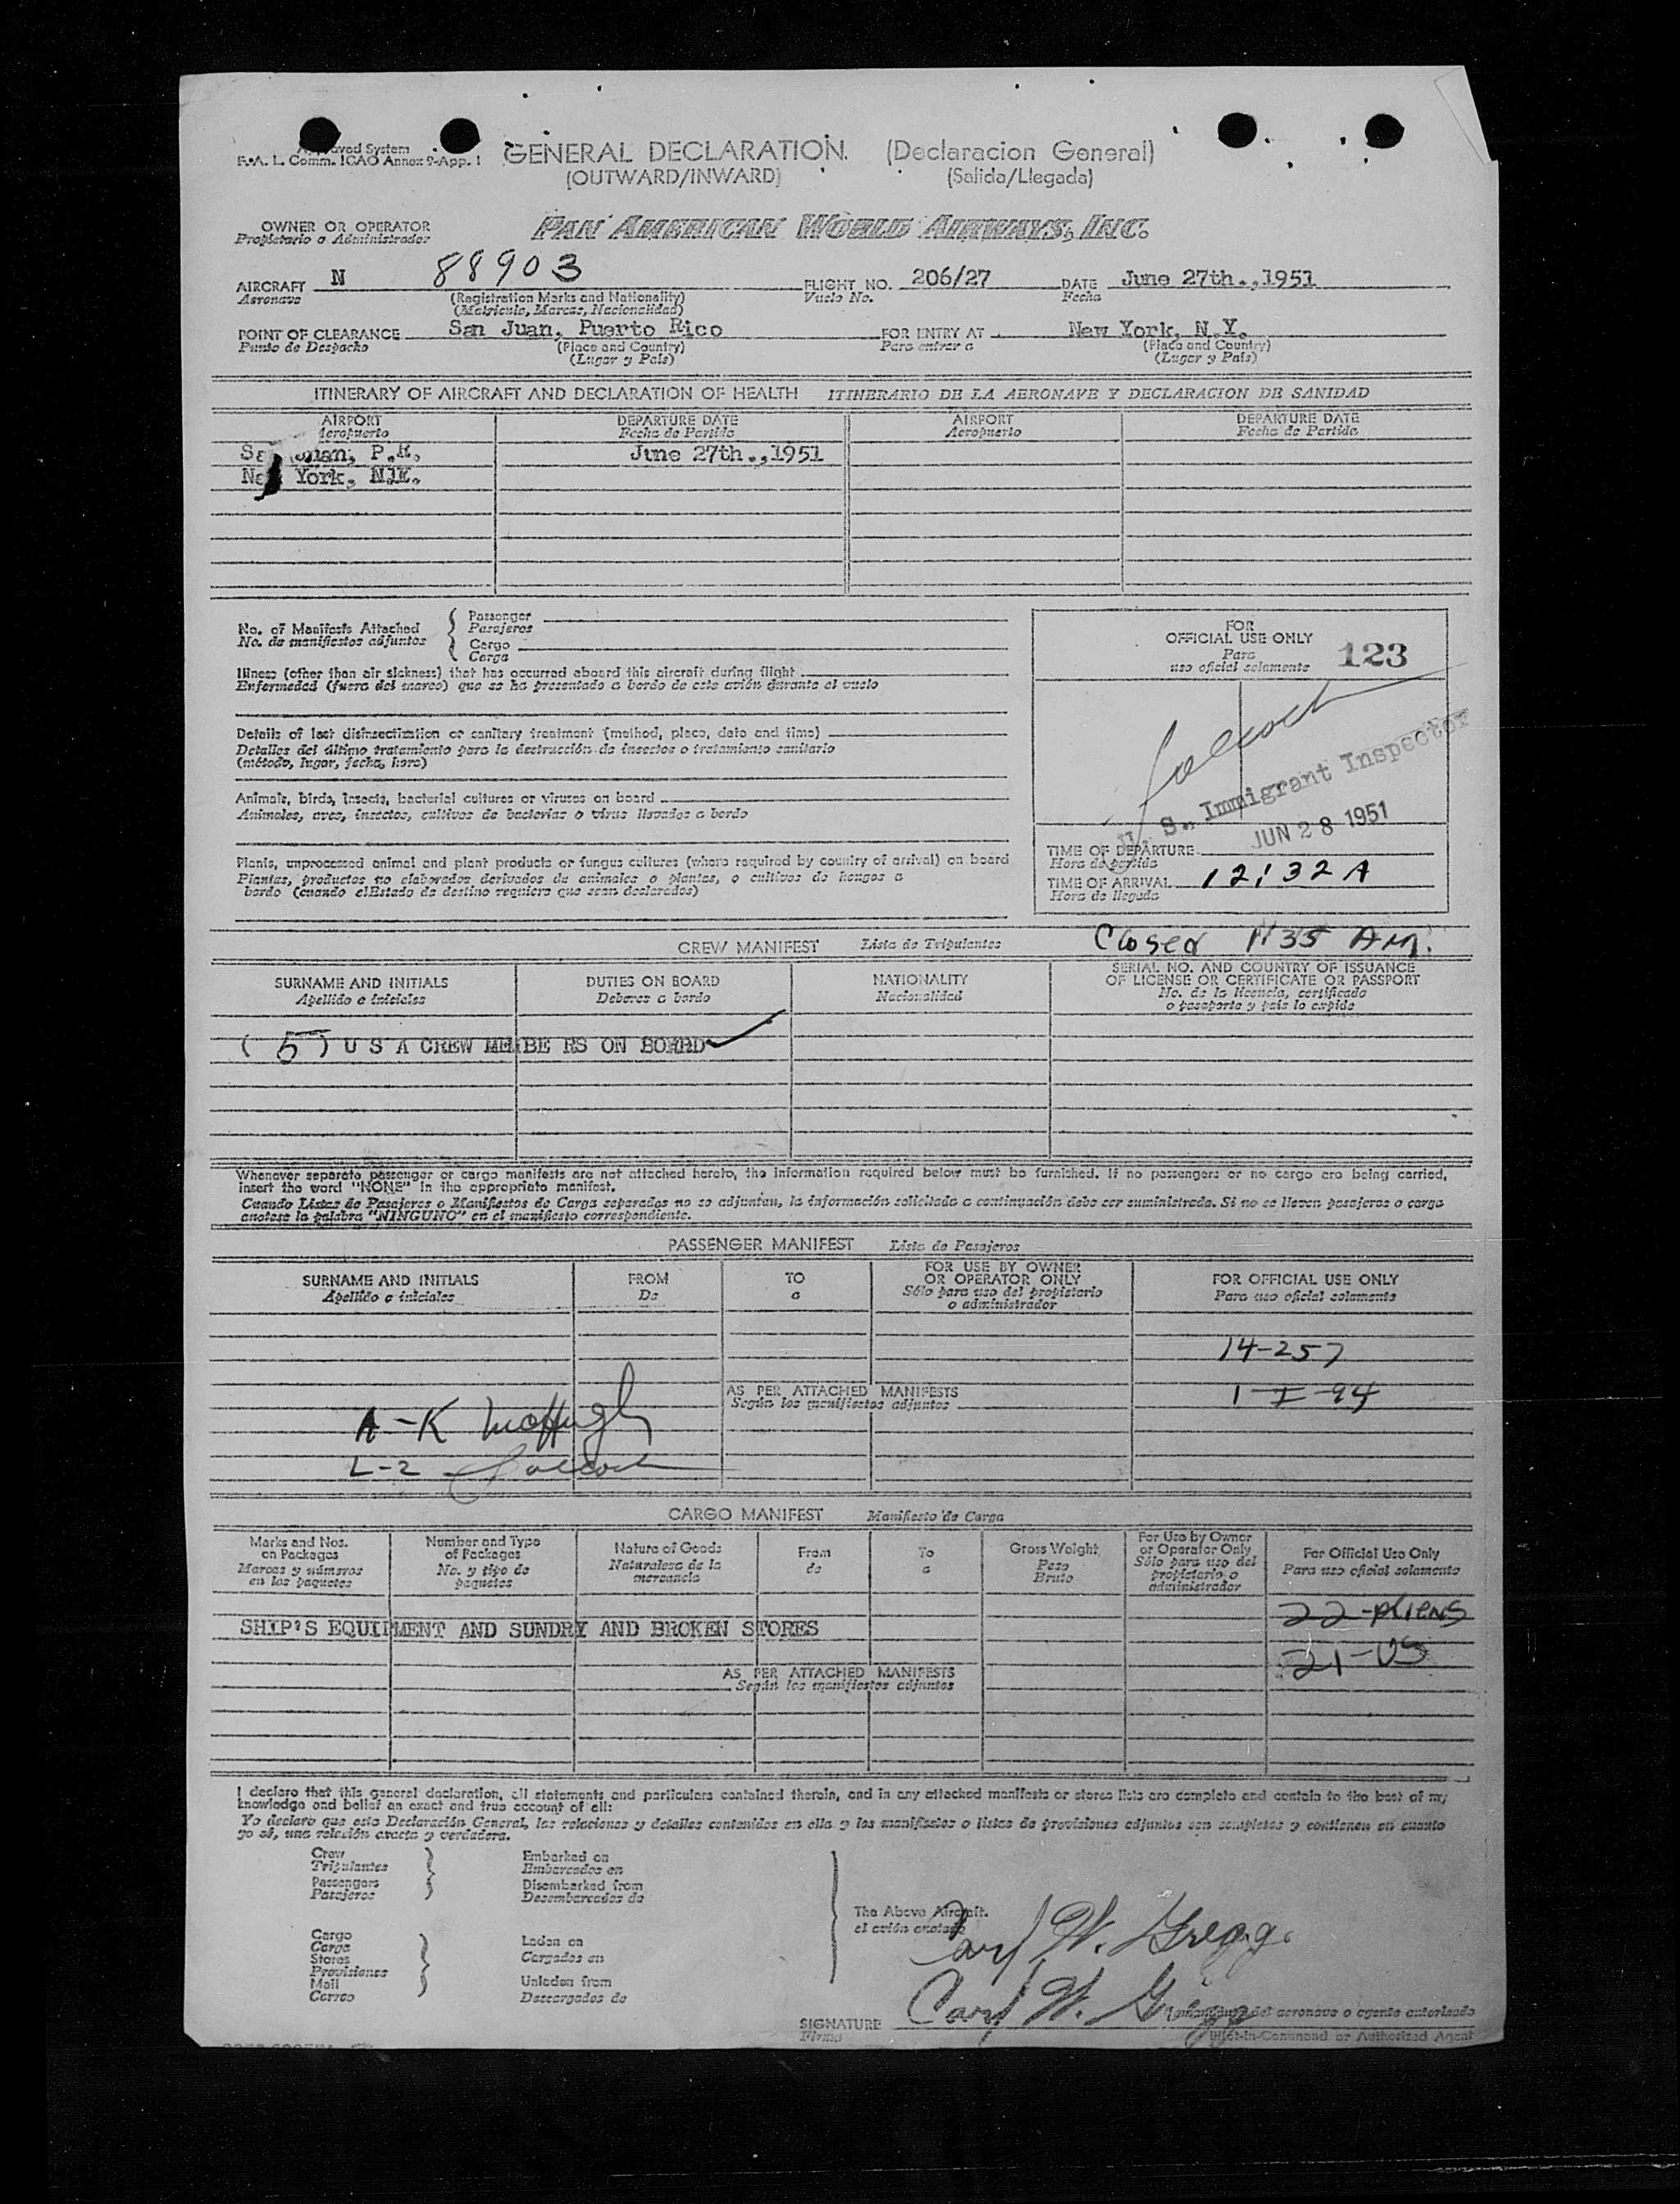 GENERAL DECLARATION. (Declaracion General)
F.A.L. Comm. ICAO Annex 9-App. 1
(OUTWARD/INWARD) (Salida/Llegada)
OWNER OR OPERATOR PAN AMERICAN WORLD AIRWAYS, INC.
Propietario o Administrador
AIRCRAFT N 88903 FLIGHT NO. 206/27 DATE June 27th.,1951
Aeronave (Registration Marks and Nationality) Vuelo No. Fecha
(Matricula, Marcas, Nacionalidad)
POINT OF CLEARANCE San Juan, Puerto Rico FOR ENTRY AT New York, N.Y.
Punto de Despacho (Place and Country) Para entrar a (Place and Country)
(Lugar y País) (Lugar y País)
ITINERARY OF AIRCRAFT AND DECLARATION OF HEALTH ITINERARIO DE LA AERONAVE Y DECLARACION DE SANIDAD
AIRPORT DEPARTURE DATE AIRPORT DEPARTURE DATE
Aeropuerto Fecha de Partida Aeropuerto Fecha de Partida
Juan, P.R. June 27th.,1951
York,
No. of Manifests Attached Passenger
No. de manifiestos adjuntos Pasajeros
Cargo
Carga
Illness (other than air sickness) that has occurred aboard this aircraft during flight
Enfermedad (fuera del mareo) que se ha presentado a bordo de este avión durante el vuelo
Details of last disinsectization or sanitary treatment (method, place, date and time)
Detalles del último tratamiento para la destrucción de insectos o tratamiento sanitario
(método, lugar, fecha, hora)
Animals, birds, insects, bacterial cultures or viruses on board
Animales, aves, insectos, cultivos de bacterias o virus llevados a bordo
Plants, unprocessed animal and plant products or fungus cultures (where required by country of arrival) on board
Plantas, productos no elaborados derivados de animales o plantas, o cultivos de hongos a
bordo (cuando elEstado de destino requiera que sean declarados)
FOR
OFFICIAL USE ONLY
Para
uso oficial solamente
123
U. S. Immigrant Inspector
JUN 28 1951
TIME OF DEPARTURE
Hora de partida
TIME OF ARRIVAL 12:32 A
Hora de llegada
Closed 1:35 AM.
CREW MANIFEST Lista de Tripulantes
SURNAME AND INITIALS DUTIES ON BOARD NATIONALITY SERIAL NO. AND COUNTRY OF ISSUANCE
OF LICENSE OR CERTIFICATE OR PASSPORT
Apellido e iniciales Deberes a bordo Nacionalidad No. de la licencia, certificado
o pasaporte y país lo expide
( 5 ) U S A CREW MEMBE RS ON BOARD
Whenever separate passenger or cargo manifests are not attached hereto, the information required below must be furnished. If no passengers or no cargo are being carried,
insert the word "NONE" in the appropriate manifest.
Cuando Listas de Pasajeros o Manifiestos de Carga separados no se adjuntan, la información solicitada a continuación debe ser suministrada. Si no se llevan pasajeros o carga
anotese la palabra "NINGUNO" en el manifiesto correspondiente.
PASSENGER MANIFEST Lista de Pasajeros
SURNAME AND INITIALS FROM TO FOR USE BY OWNER
OR OPERATOR ONLY FOR OFFICIAL USE ONLY
Apellido e iniciales De a Sólo para uso del propietario
o administrador Para uso oficial solamente
14-257
AS PER ATTACHED MANIFESTS 1-I-94
Según los manifiestos adjuntos
A-K
L-2
CARGO MANIFEST Manifiesto de Carga
Marks and Nos.
on Packages
Marcas y números
en los paquetes
Number and Type
of Packages
No. y tipo de
paquetes
Nature of Goods
Naturaleza de la
mercancia
From
de
To
a
Gross Weight
Peso
Bruto
For Use by Owner
or Operator Only
Sólo para uso del
propietario o
administrador
For Official Use Only
Para uso oficial solamente
22-Aliens
SHIP'S EQUIPMENT AND SUNDRY AND BROKEN STORES
21-US
AS PER ATTACHED MANIFESTS
Según los manifiestos adjuntos
I declare that this general declaration, all statements and particulars contained therein, and in any attached manifests or stores lists are complete and contain to the best of my
knowledge and belief an exact and true account of all:
Yo declaro que esta Declaración General, las relaciones y detalles contenidos en ella y los manifiestos o listas de provisiones adjuntos son completos y contienen en cuanto
yo sé, una relación exacta y verdadera.
Crew Embarked on
Tripulantes Embarcados en
Passengers Disembarked from
Pasajeros Desembarcados de
The Above Aircraft.
el avión anotado
Cargo Laden on
Carga Cargados en
Stores
Provisiones
Mail Unladen from
Correo Descargados de
Carl W. Gregg.
Carl W. Gregg
del aeronave o agente autorizado
SIGNATURE
Firma Pilot-in-Command or Authorized Agent